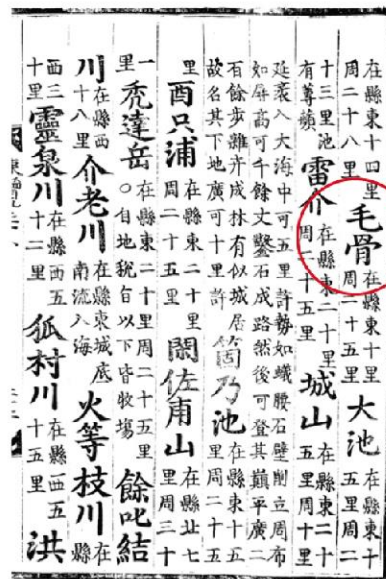 在縣東十四里周二十八里毛骨在縣東十里周二十五里大池在縣東十五里周二
十三里池有蓴雷介在縣東二十里周二十五里城山在縣東二十里周十里
延袤入大海中可五里許勢如蟻腰石壁削立周布如屏高可千餘丈鑿石成路然後可登其巔平廣二
百餘步雜卉成林有似城居故名其下地廣可十里許箇乃池在縣東十五里周二十五
里酉只浦在縣東二十里周二十五里閑佐甫山在縣北七里周三十
一里禿達岳在縣東二十里周二十五里〇自地稅旨以下皆牧場餘叱結
川在縣西十八里介老川在縣東城底南流入海火等枝川在縣
西三十里靈泉川在縣西五十二里狐村川在縣西五十五里洪